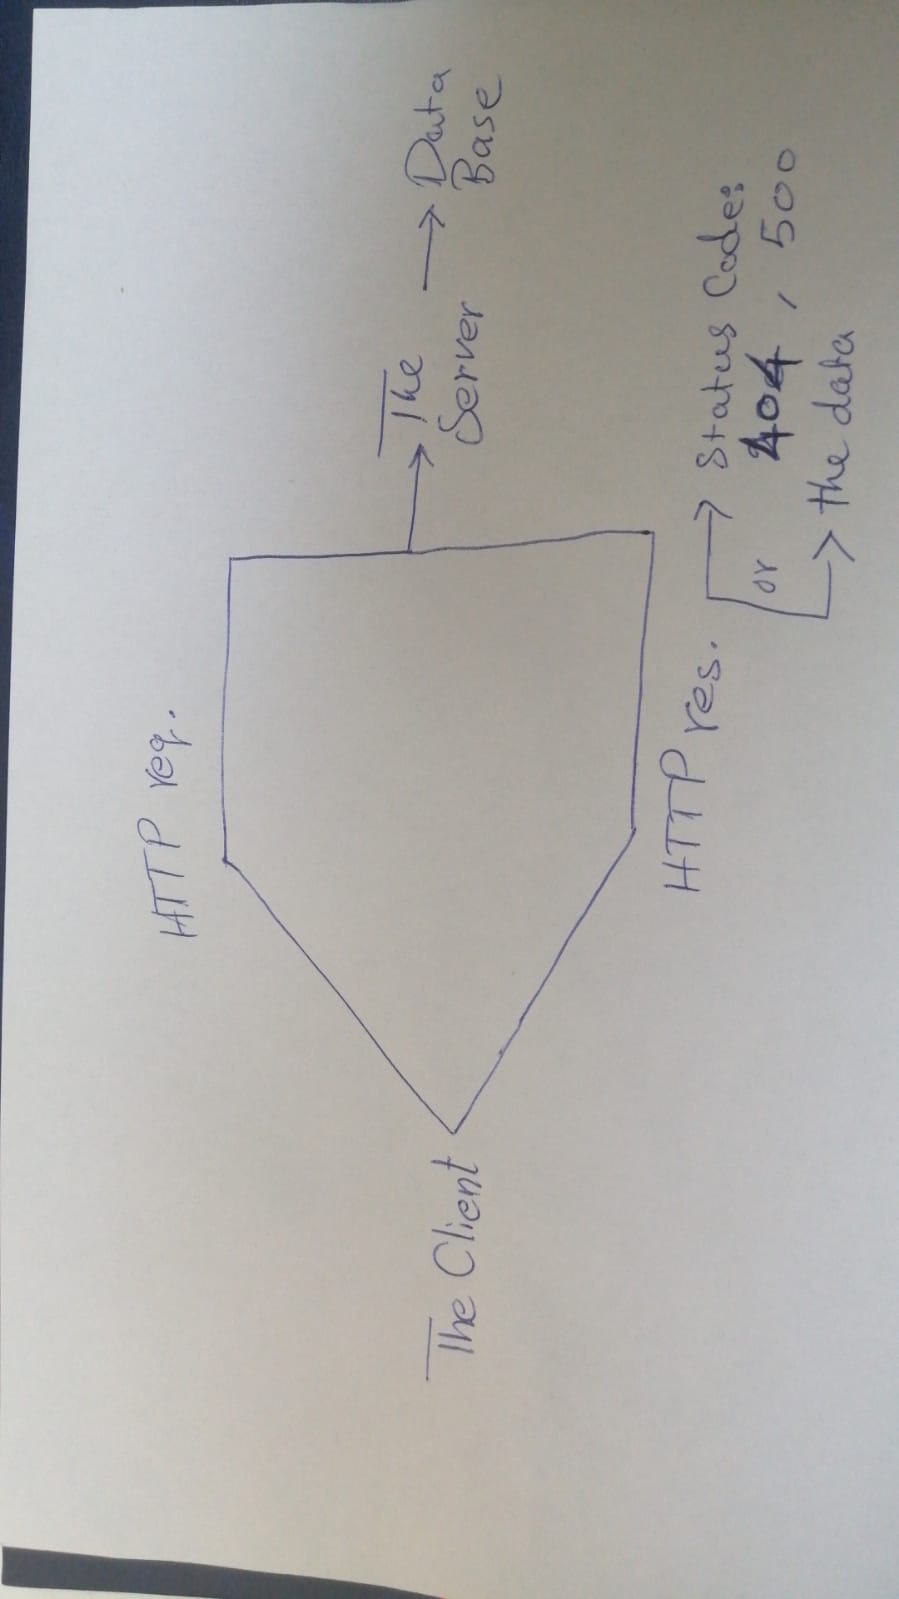 HTTP req.
The Client
The
Server
Data
Base
HTTP res.
Status Code:
404, 500
or
the data